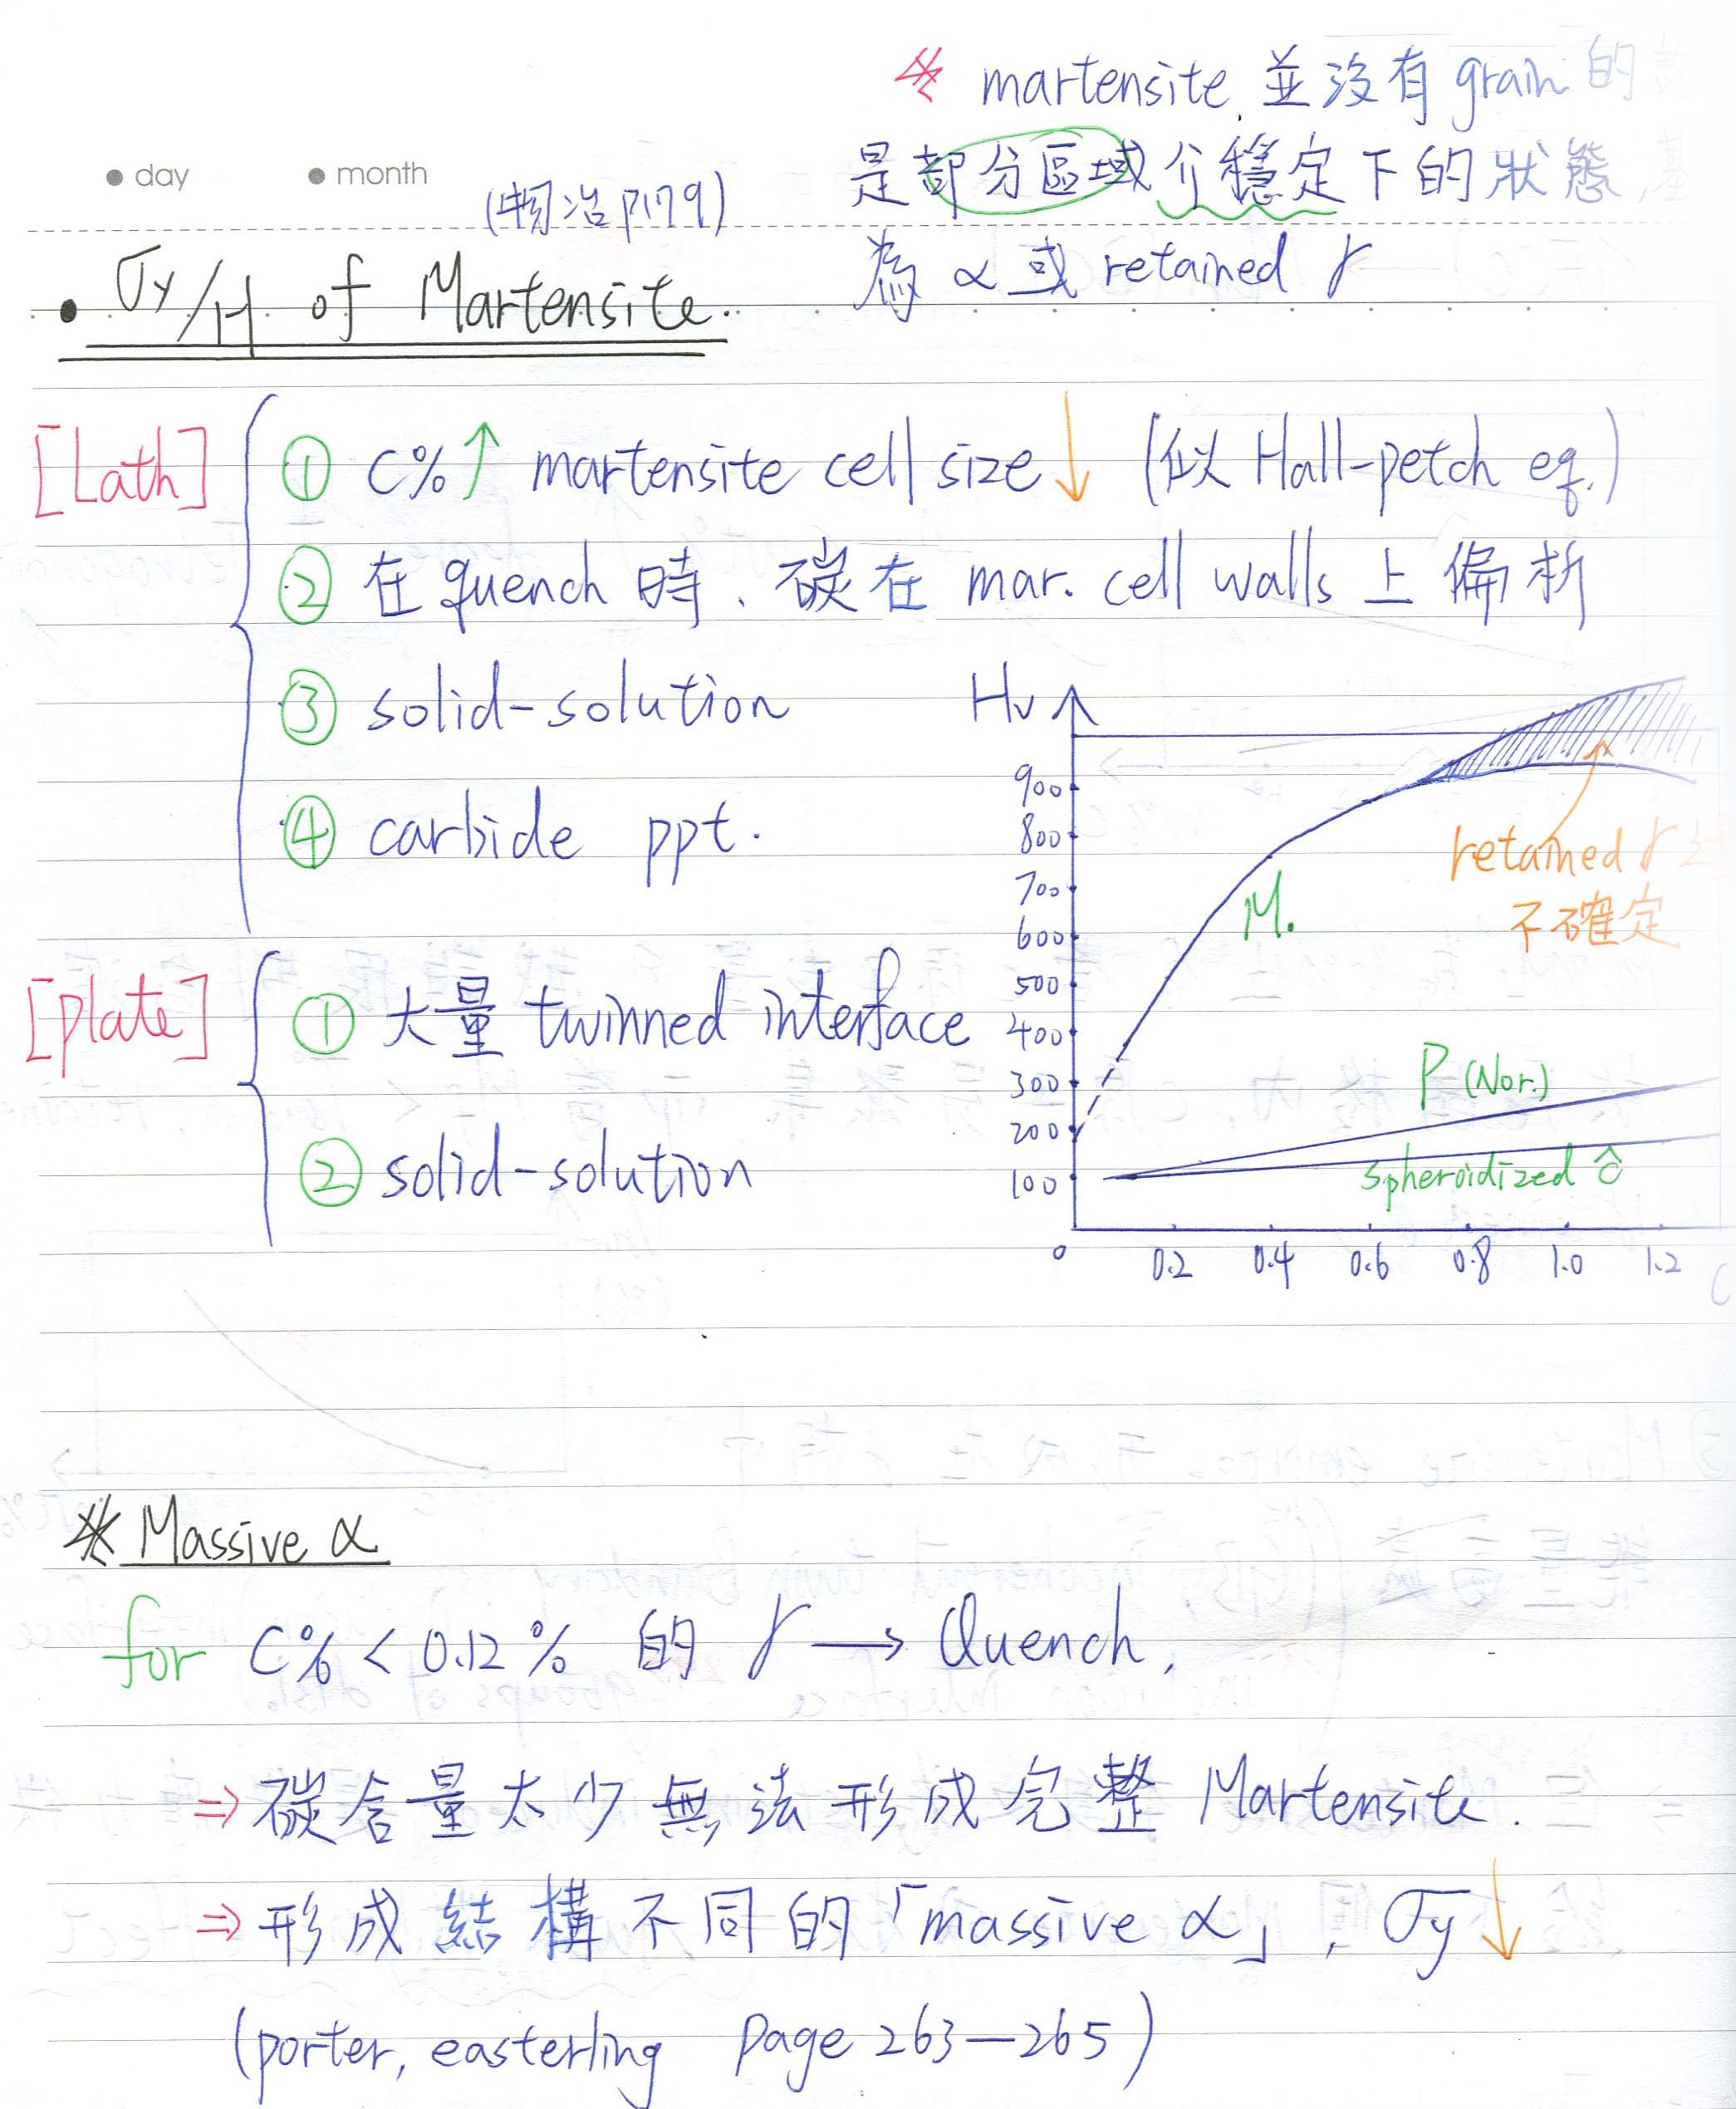 ※ martensite 並沒有 grain 的
● day ● month
(物冶 P179)
是部分區域介穩定下的狀態,
為 α 或 retained γ
• σy/H of Martensite.
[Lath]
① C%↑ martensite cell size↓ (似 Hall-petch eq.)
② 在 quench 時、碳在 mar. cell walls 上偏析
③ solid-solution
④ carbide ppt.
[plate]
① 大量 twinned interface
② solid-solution
Hv
900
800
700
600
500
400
300
200
100
0 0.2 0.4 0.6 0.8 1.0 1.2 C
M.
retained γ
不確定
P (Nor.)
spheroidized
※ Massive α
for C% < 0.12% 的 γ → Quench,
⇒ 碳含量太少無法形成完整 Martensite.
⇒ 形成結構不同的「massive α」, σy↓
(porter, easterling page 263—265)